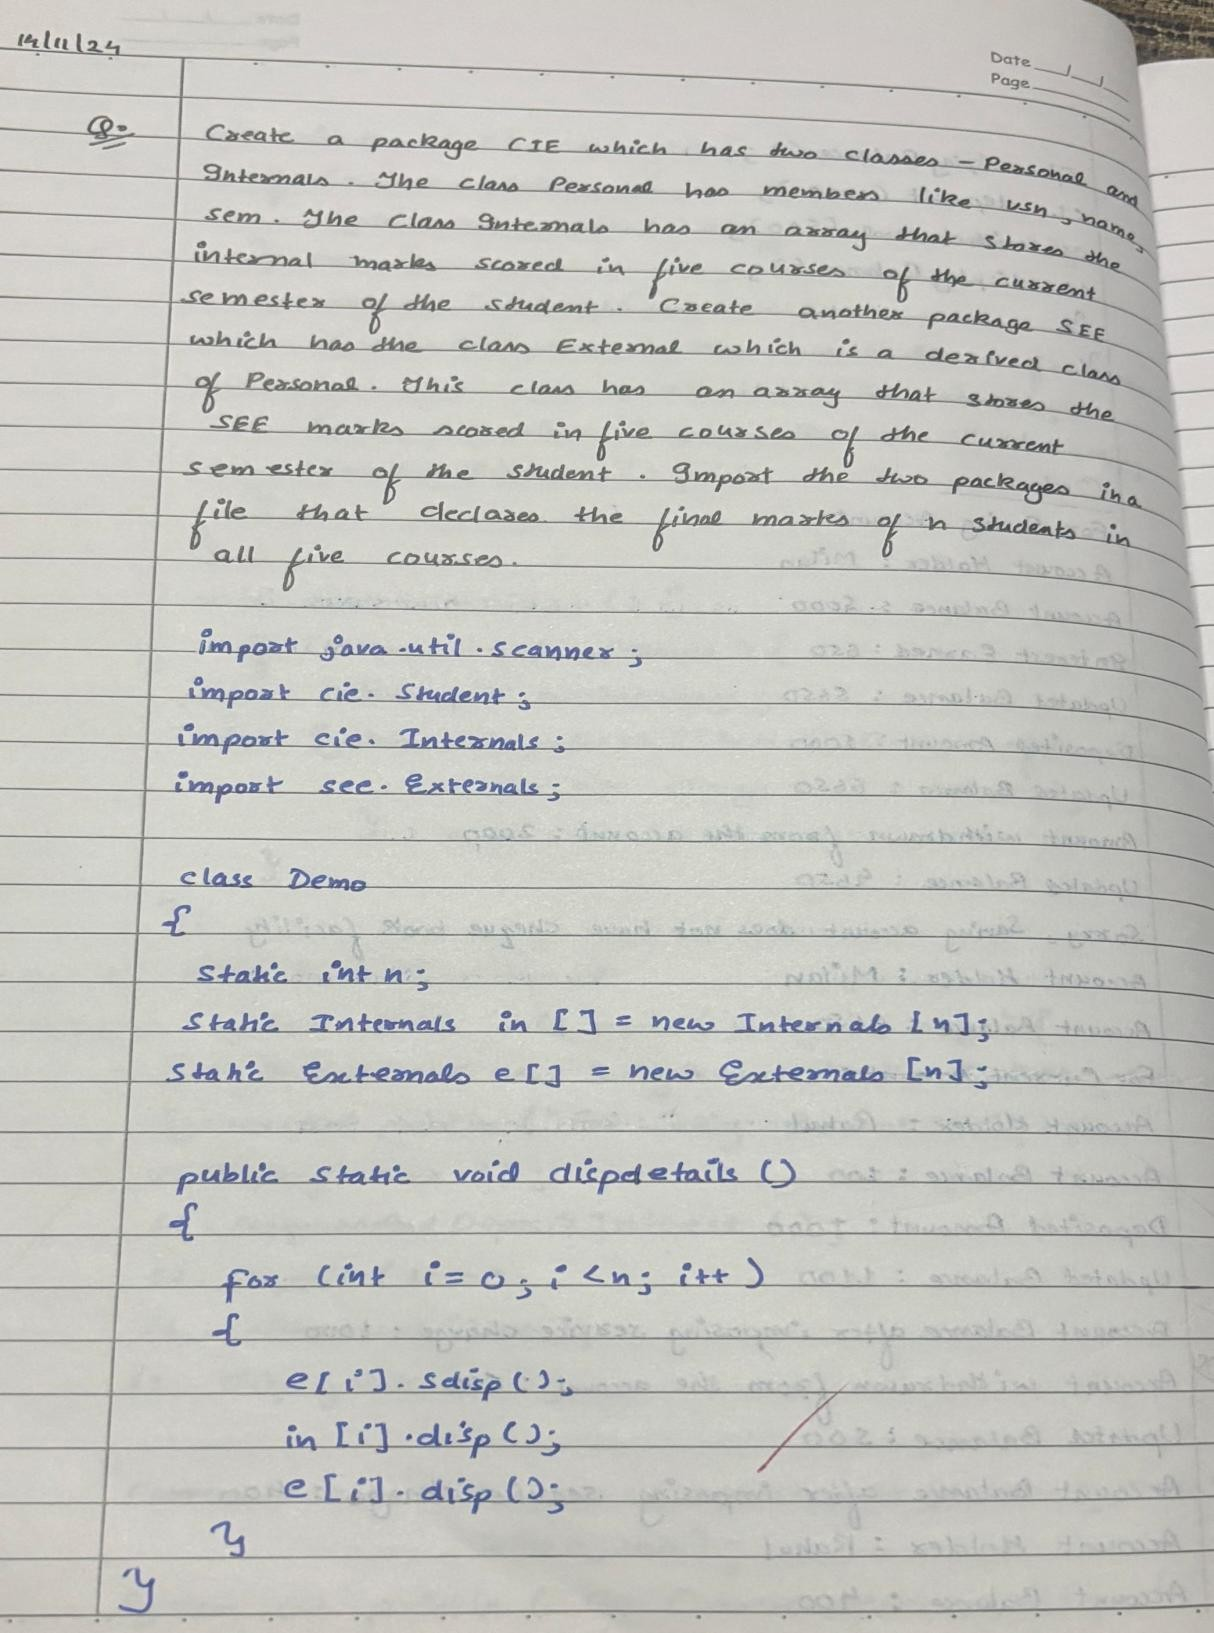 14/11/24
Date
Page
Q.
Create a package CIE which has two classes - Personal and
Internals. The class Personal has members like usn, name,
sem. The class Internals has an array that stores the
internal marks scored in five courses of the current
semester of the student. Create another package SEE
which has the class External which is a derived class
of Personal. This class has an array that stores the
SEE marks scored in five courses of the current
semester of the student. Import the two packages in a
file that declares the final marks of n students in
all five courses.
import java.util.scanner;
import cie. Student;
import cie. Internals;
import see. Externals;
class Demo
{
static int n;
static Internals in [] = new Internals [n];
static Externals e[] = new Externals [n];
public static void dispdetails ()
{
for (int i=0; i<n; i++)
{
e[i]. sdisp();
in [i].disp();
e[i]. disp();
}
}